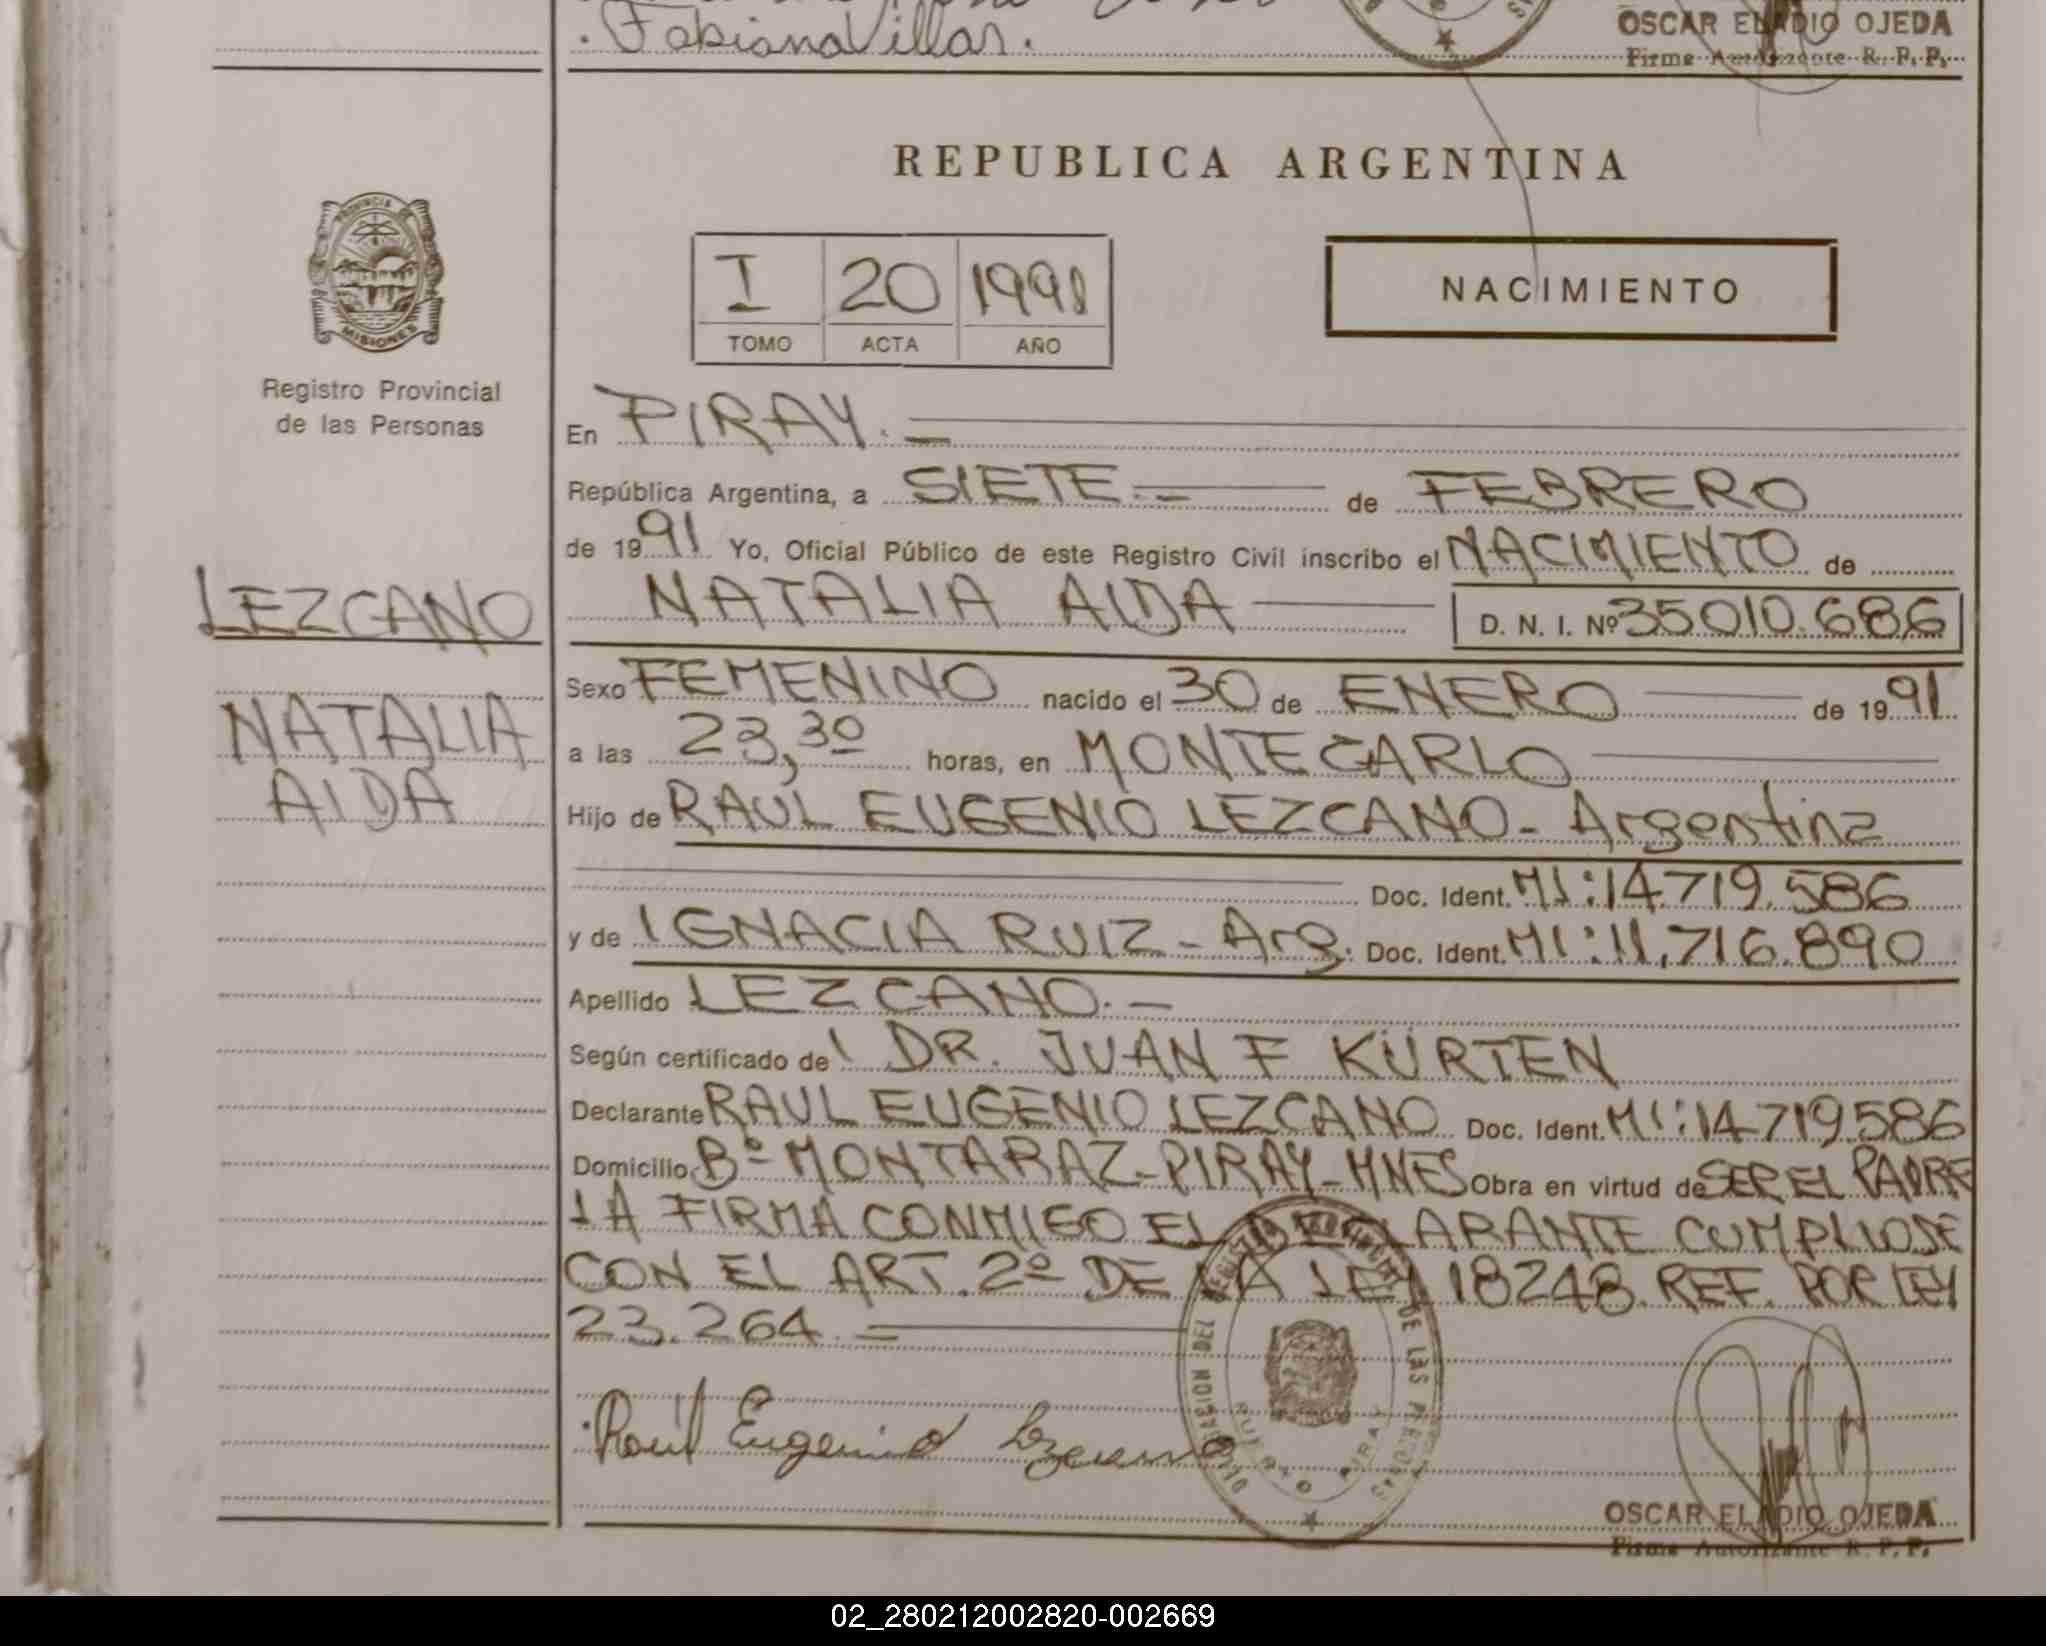 . Fabiana Villar.
OSCAR ELADIO OJEDA
Firma Autorizante R. P. P.
REPUBLICA ARGENTINA
PROVINCIA DE
MISIONES
Registro Provincial
de las Personas
I 20 1991
TOMO ACTA AÑO
NACIMIENTO
En PIRAY.
República Argentina, a SIETE.- de FEBRERO
de 1991 Yo, Oficial Público de este Registro Civil inscribo el NACIMIENTO de
LEZCANO
NATALIA AIDA
D. N. I. Nº 35010.686
NATALIA
AIDA
Sexo FEMENINO nacido el 30 de ENERO de 1991
a las 23,30 horas, en MONTECARLO
Hijo de RAUL EUGENIO LEZCANO - Argentina
Doc. Ident. MI: 14.719.586
y de IGNACIA RUIZ - Arg. Doc. Ident. MI: 11.716.890
Apellido LEZCANO.-
Según certificado de DR. JUAN F KÜRTEN
Declarante RAUL EUGENIO LEZCANO Doc. Ident. MI: 14719586
Domicilio Bº MONTARAZ - PIRAY - MNES Obra en virtud de SER EL PADRE
LA FIRMA CONMIGO EL DECLARANTE CUMPLIOSE
CON EL ART. 2º DE LA LEY 18248. REF. POR LEY
23.264.
DELEGACION DEL REGISTRO PROVINCIAL DE LAS PERSONAS
PUERTO PIRAY
Raúl Eugenio Lezcano
OSCAR ELADIO OJEDA
Firma Autorizante R. P. P.
02_280212002820-002669